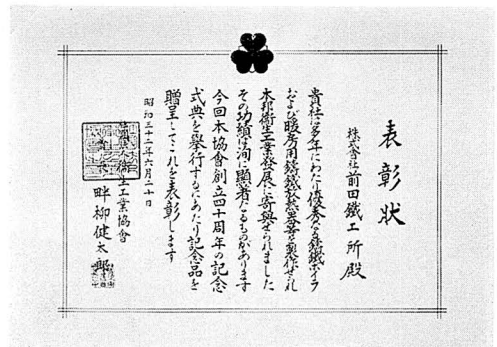 表彰状
株式會社 前田鐵工所殿
貴社は多年にわたり優秀なる鋳鐵ボイラ
および暖房用鋳鐵放熱器を製作せられ
本邦衛生工業発展に寄與せられました
その功績は洵に顕著たるものがあります
今回本協會創立四十周年の記念
式典を挙行するにあたり記念品を
贈呈してこれを表彰します
昭和三十二年六月二十日
衛生工業協會
畔柳健太郎